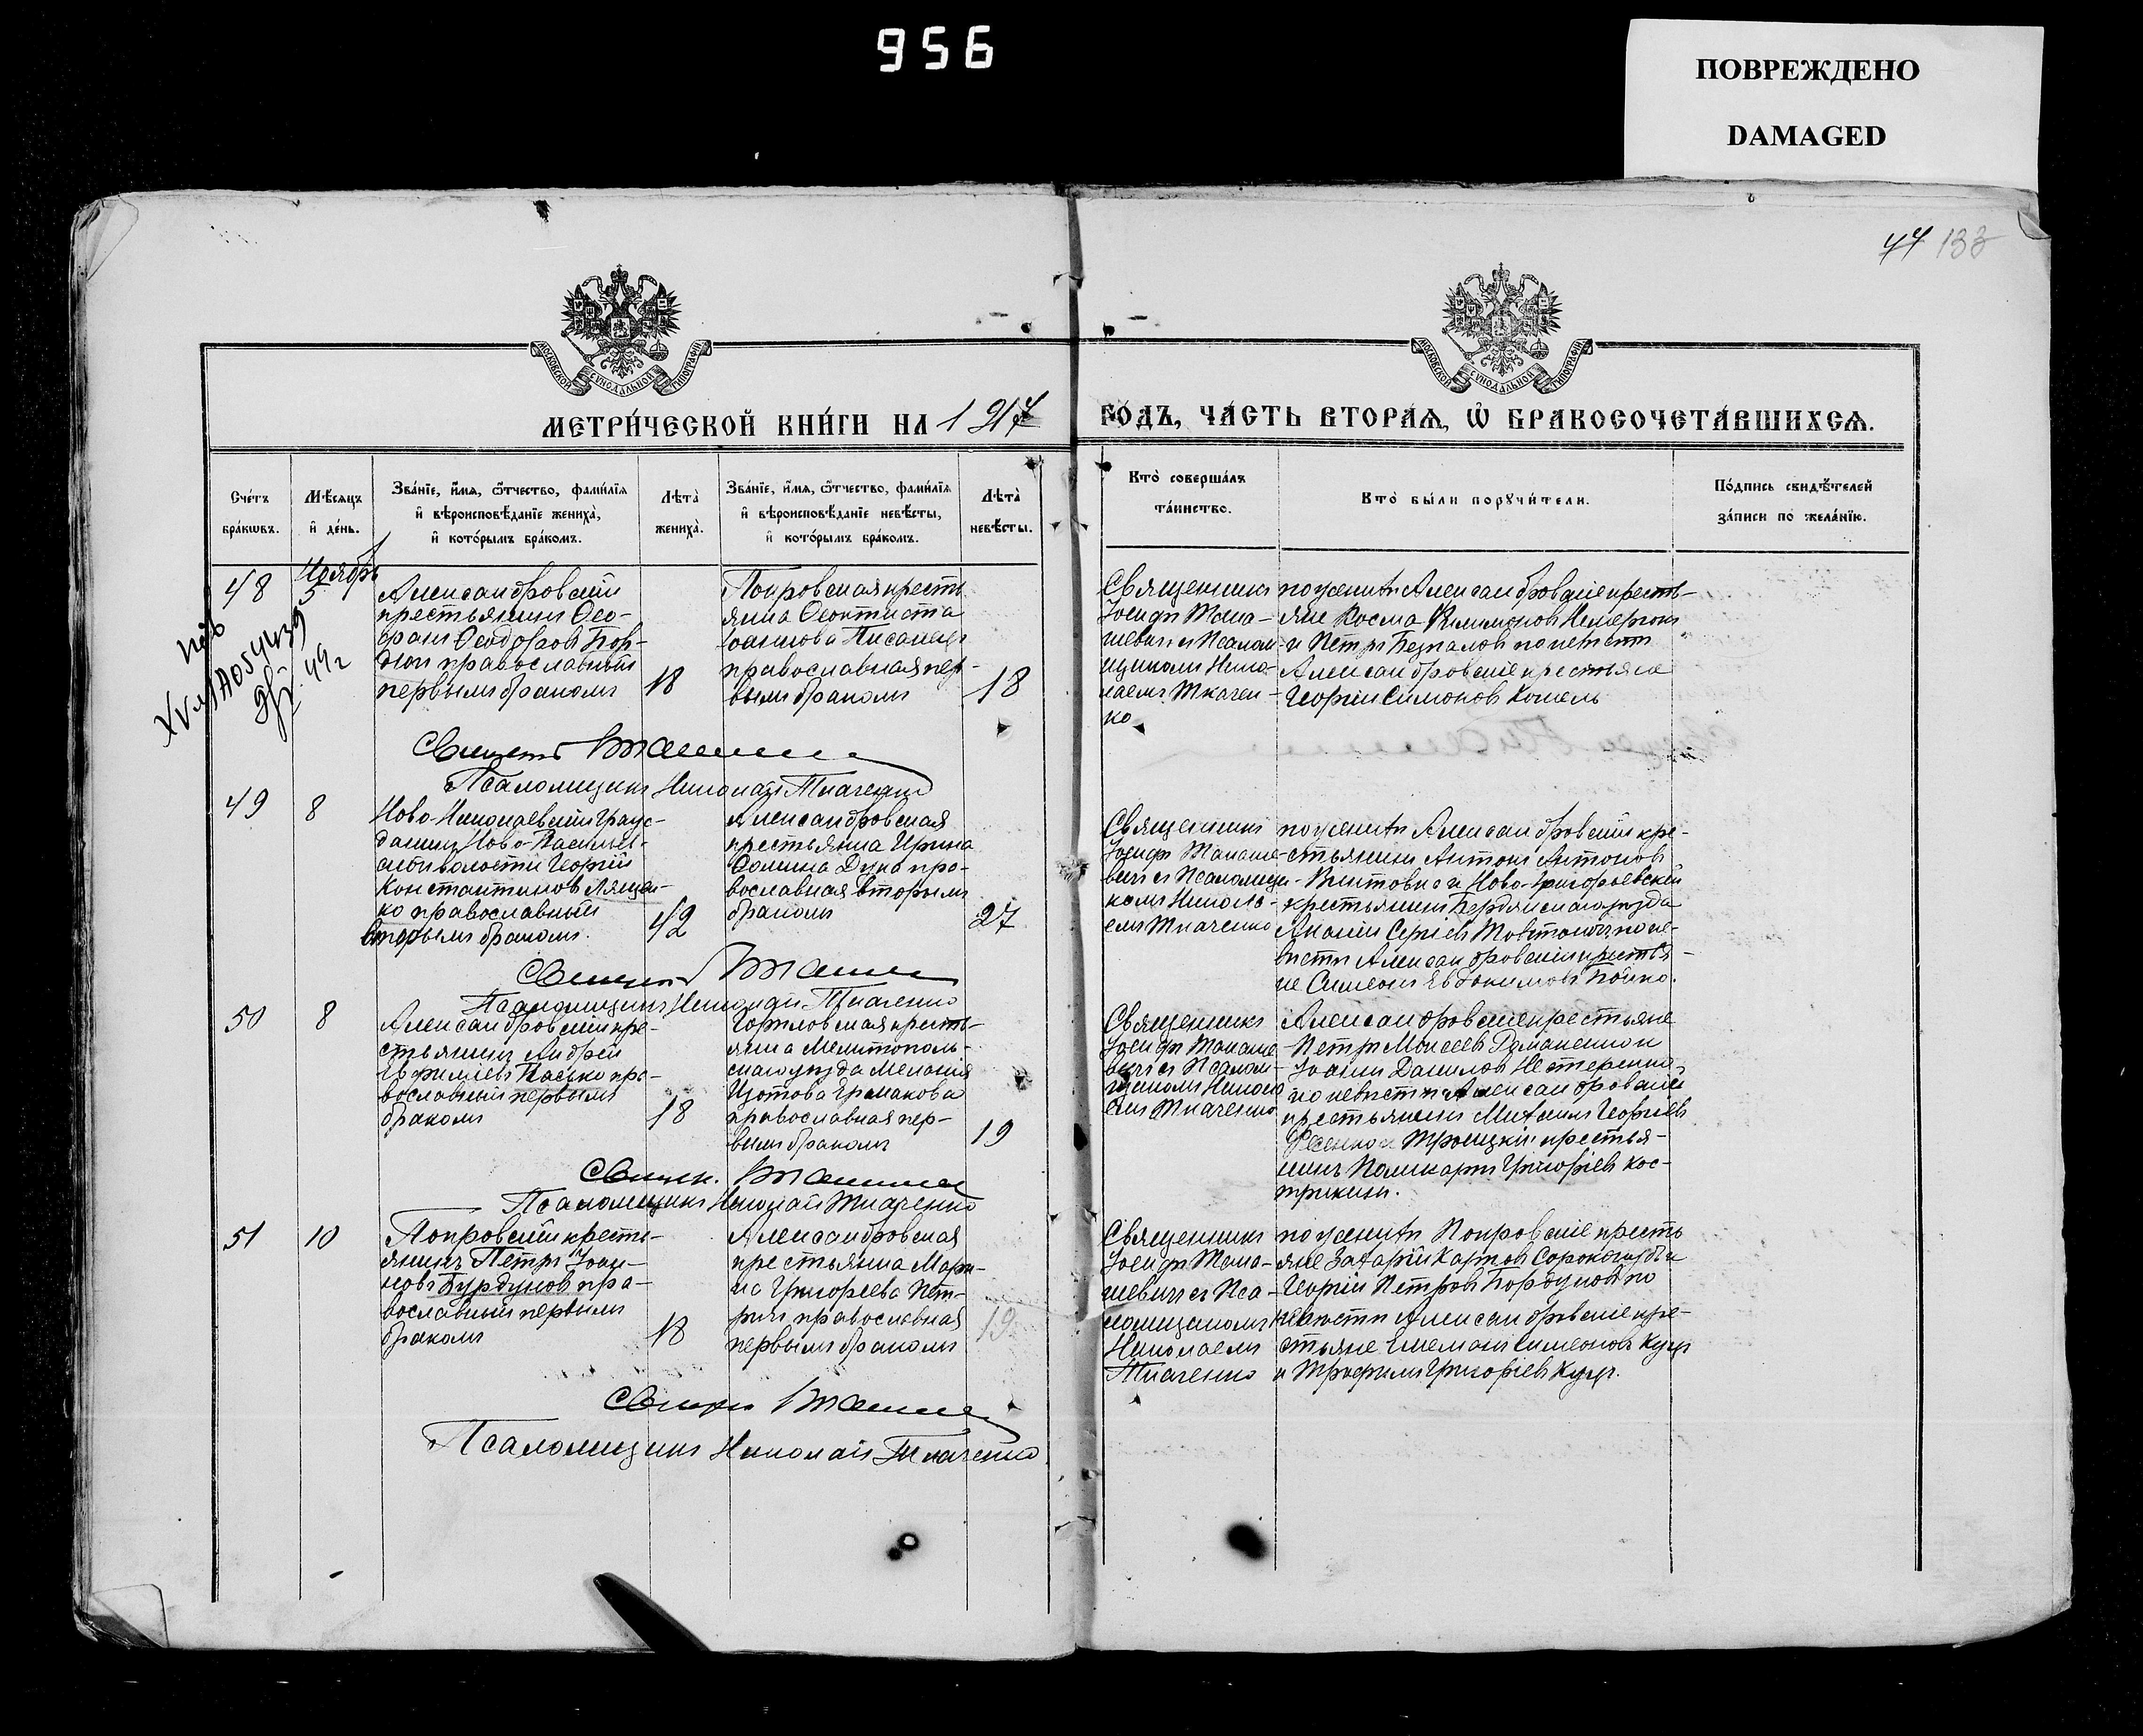 956
ПОВРЕЖДЕНО
DAMAGED
133
МОСКОВСКОЙ СѴНОДАЛЬНОЙ ТИПОГРАФІИ
МОСКОВСКОЙ СѴНОДАЛЬНОЙ ТИПОГРАФІИ
МЕТРИ́ЧЕСКОЙ КНИ́ГИ НА 1917
ГО́ДЪ, ЧА́СТЬ ВТОРАѦ, Ѡ҆ БРАКОСОЧЕТА́ВШИХСѦ.
Сче́тъ бра́кѡвъ.
Мѣ́сяцъ и҆ де́нь.
Зва́нїе, и҆́мѧ, ѻ҆́тчество, фамѝлїѧ
и҆ вѣроисповѣ́данїе жениха̀,
и҆ кото́рымъ бра́комъ.
Лѣта̀ жениха̀.
Зва́нїе, и҆́мѧ, ѻ҆́тчество, фамѝлїѧ
и҆ вѣроисповѣ́данїе невѣ́сты,
и҆ кото́рымъ бра́комъ.
Лѣта̀ невѣ́сты.
Кто̀ соверша́лъ
та́инство.
Кто̀ бы́ли порꙋчи́тели.
По́дпись свидѣ́телей
за́писи по жела́нїю.
Ноябрь
48
5
Александровскій
крестьянинъ Ѳео-
фанъ Ѳеодоровъ Бор-
дюгъ православный
первымъ бракомъ
18
Покровская кресть
янка Ѳеоктиста
Іоаннова
православная пер-
вымъ бракомъ
18
Священникъ
Іосифъ Тома-
шевичъ съ Псалом-
щикомъ Нико-
лаемъ Ткачен-
ко
по женихѣ Александровскіе кресть-
яне Косма Климоновъ
и Петръ Безпаловъ по невѣстѣ
Александровскіе крестьяне
Георгій Симоновъ Кошель
Псаломщикъ Николай Ткаченко
49
8
Ново-Николаевскій граж-
данинъ Ново-Васильев-
ской волости Георгій
Константиновъ Лящен-
ко православный
вторымъ бракомъ.
42
Александровская
крестьянка Ирина
Ѳомина Дука пра-
вославная вторымъ
бракомъ
27
Священникъ
Іосифъ Томаше-
вичъ съ Псаломщи-
комъ Никола-
емъ Ткаченко
по женихѣ Александровскій кре-
стьянинъ Антонъ Антоновъ
и Ново-Григорьевскій
крестьянинъ Бердянскаго уѣзда
по не-
вѣстѣ Александровскій крестья-
не Симеонъ Евдокимовъ Бойко.
Псаломщикъ Николай Ткаченко
50
8
Александровскій кре-
стьянинъ Андрей
пра-
вославный первымъ
бракомъ
18
Гориловская кресть-
янка Мелитополь-
скаго уѣзда Меланія
Изотова Ермакова
православная пер-
вымъ бракомъ
19
Священникъ
Іосифъ Томаше
вичъ съ Псалом-
щикомъ Никола
емъ Ткаченко
Александровскіе крестьяне
Петръ Моисеевъ Романенко и
Іоаннъ Даниловъ Нестеренко,
по невѣстѣ Александровскій
крестьянинъ Михаилъ Георгіевъ
Фесенко и Троицкій крестья-
нинъ Поликарпъ Григорьевъ Кос-
трикинъ.
Псаломщикъ Николай Ткаченко
51
10
Покровскій кресть-
янинъ Петръ Іоан-
новъ Бурдуковъ пра-
вославный первымъ
бракомъ
18
Александровская
крестьянка Мари-
на Григорьева Пет-
ричъ православная
первымъ бракомъ
19
Священникъ
Іосифъ Тома-
шевичъ съ Пса-
ломщикомъ
Николаемъ
Ткаченко
по женихѣ Покровскіе кресть
яне Захарій Карповъ Сорокопудъ и
Георгій Петровъ Бордуковъ по
невѣстѣ Александровскіе кре-
стьяне Емельянъ Симеоновъ Куцъ
и Трофимъ Григорьевъ Куцъ.
Псаломщикъ Николай Ткаченко